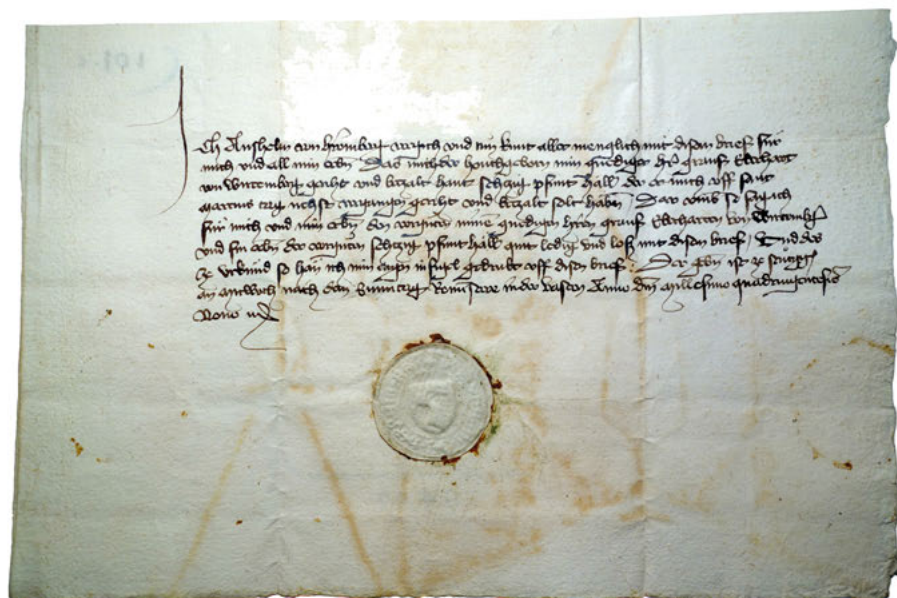 Ich Anshelm von vergich und tun kunt aller menglich mit disem brief für
mich und all min erbn Das mich der hochgeborn min gnediger h're grauf Eberhart
von Wirtemberg gericht und bezalt haut sechzig pfunt hall' der er mich uff sant
Martins tag nechst vergangen gericht und bezalt solt habn Dar vmb so sag ich
für mich und min erbn den vorgnten minen gnedigen h'ren grauf Eberharten von Wirtemb'g
und sin erbn der vorgnten sechzig pfunt hall' quit ledig und loß mit disem brief Und des
ze vrkund so han ich min eigen insigel gedrukt uff disen brief Der gebn ist ze
an mitwoch nach dem Sunntag Reminiscere in der vasten Anno dni millesimo quadringentesimo
Nono